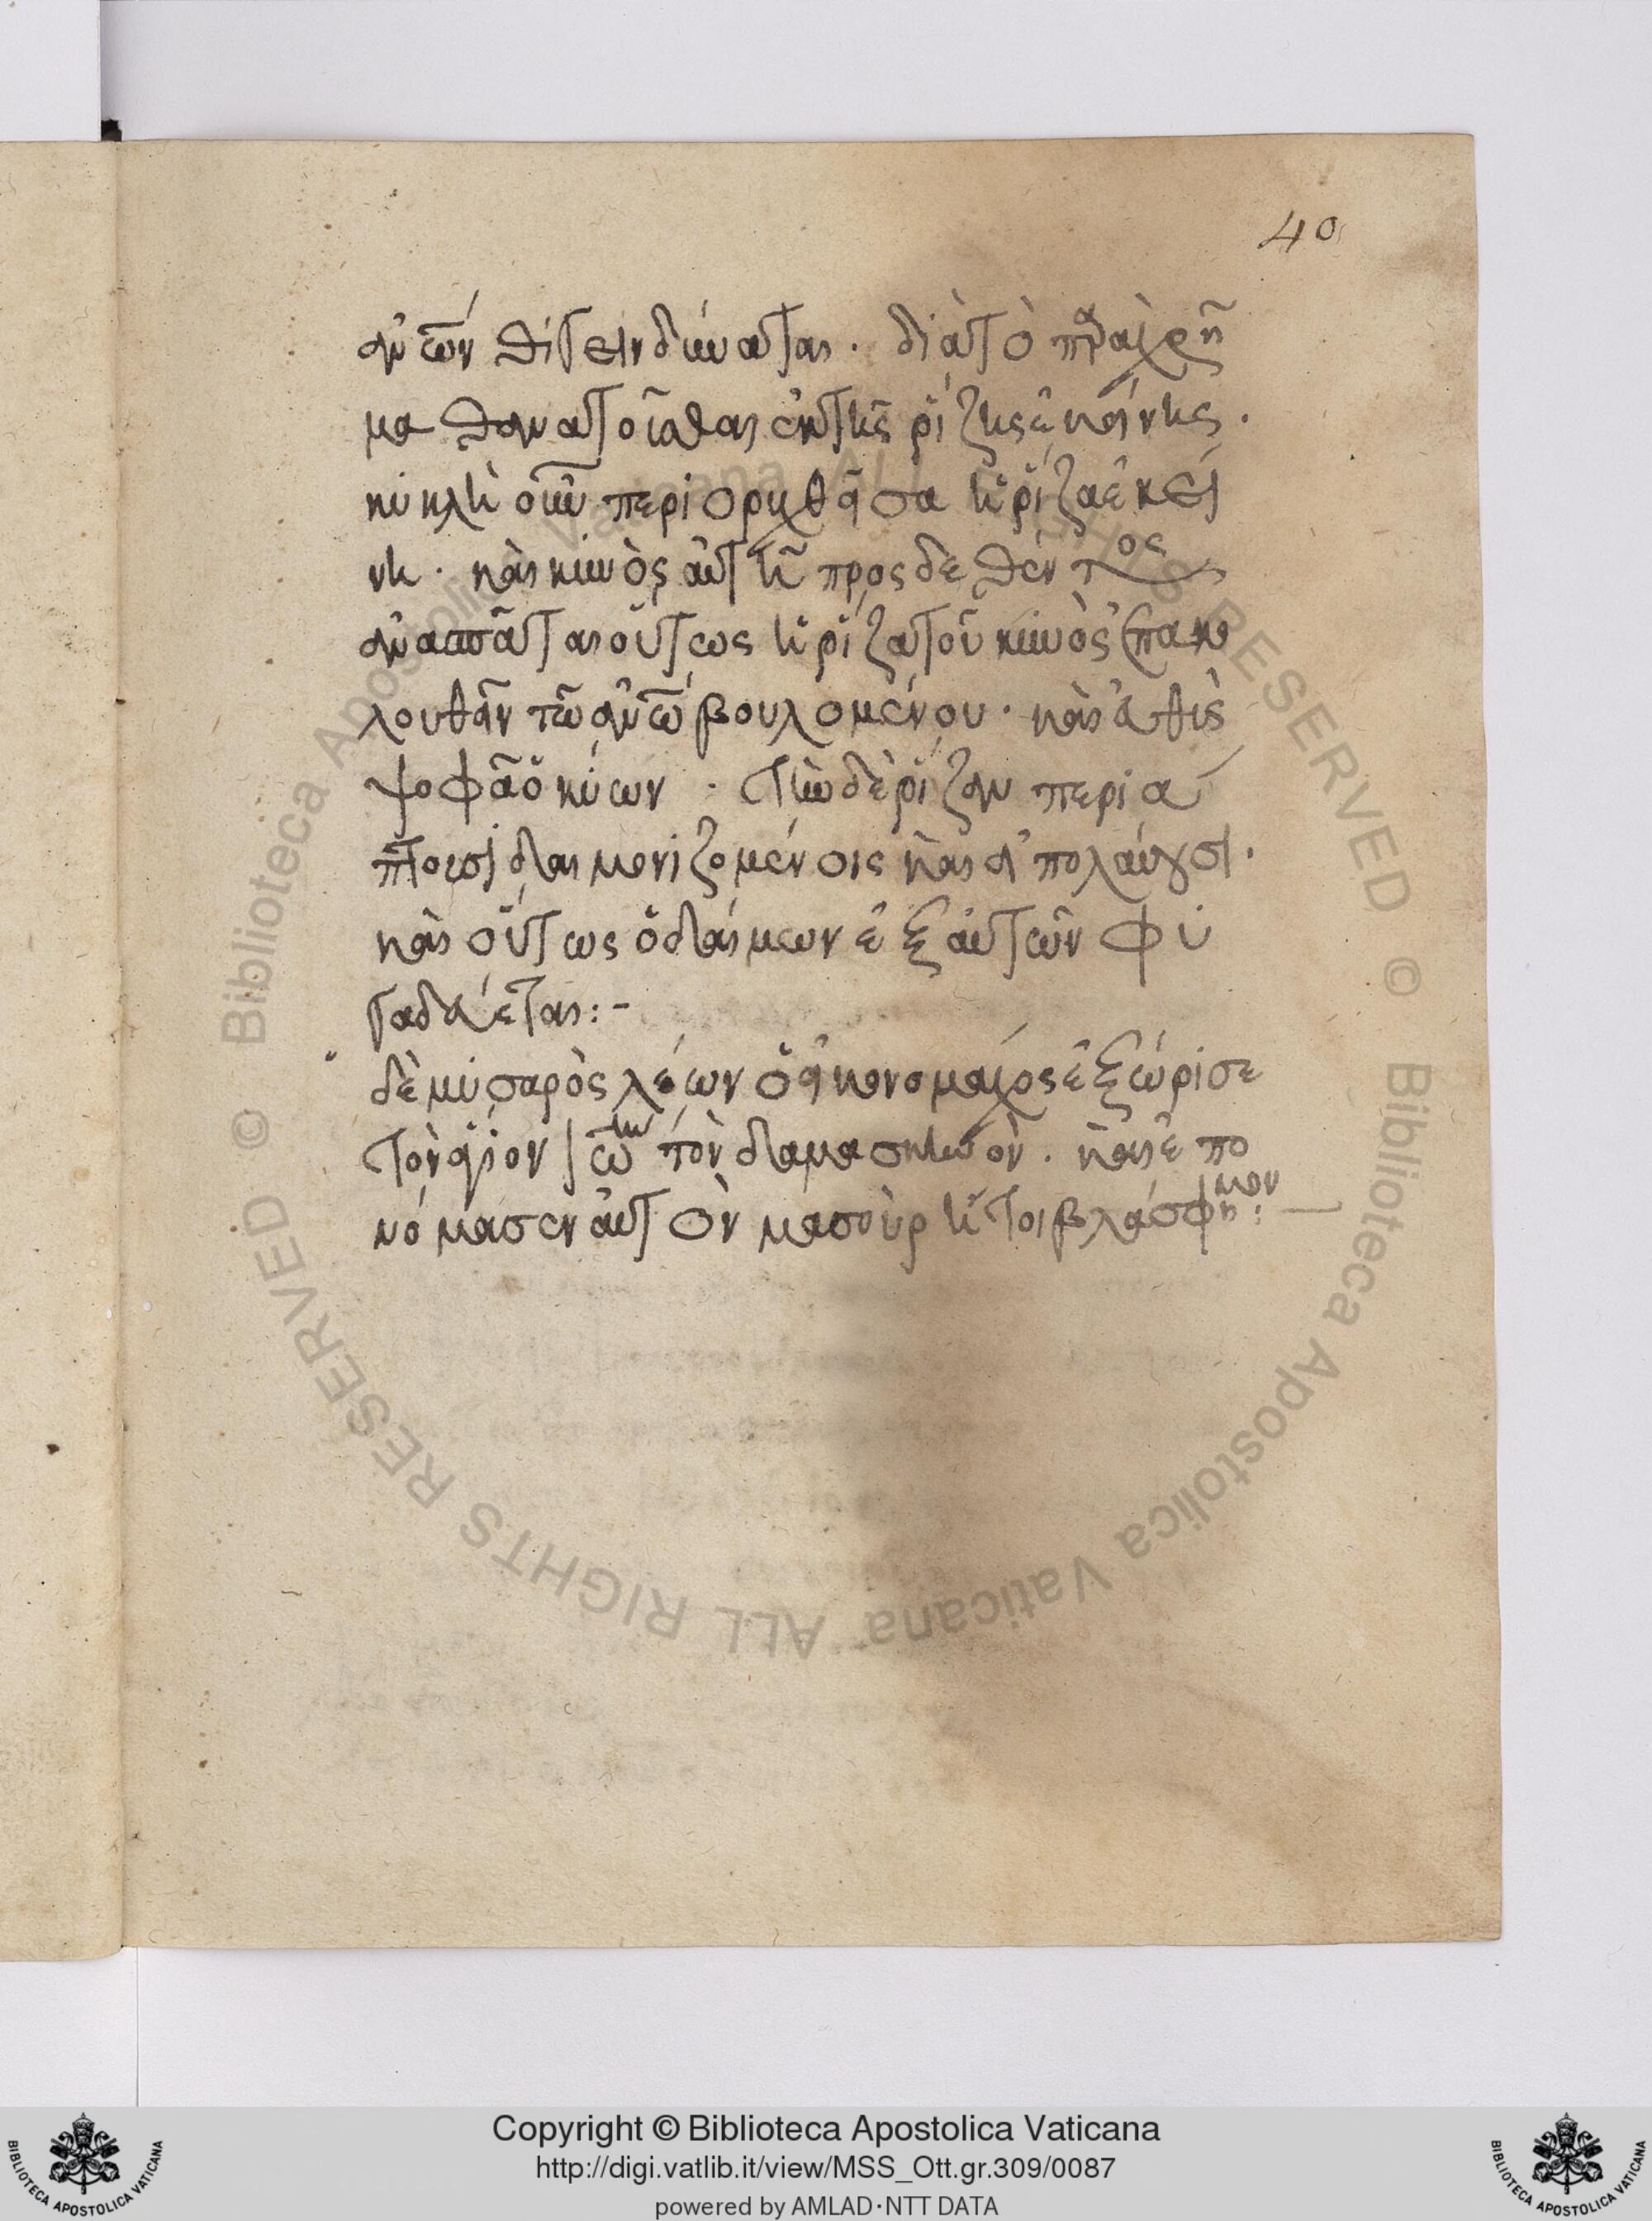 40
αὐτῶν θίγειν δύναται. διὰ τὸ παραχρῆ
μα θανατοῦσθαι ἐκ τῆς ῥίζης ἐκείνης.
κύκλῃ οὖν περιορυχθεῖσα ἡ ῥίζα ἐκεί
νη. καὶ κυνὸς αὐτῇ προσδεθέντος
ἀνασπᾶται οὕτως ἡ ῥίζα τοῦ κυνὸς ἐπακο
λουθεῖν τῶ αὐτῶ βουλομένου. καὶ εὐθὺς
ψοφεῖ ὁ κύων. τὴν δὲ ῥίζαν περιά
πτουσι δαιμονιζομένοις καὶ ἀπολύουσι.
καὶ οὕτως ὁ δαίμων ἐξ αὐτῶν φυ
γαδεύεται:-
δὲ μυσαρὸς λέων ὁ εἰκονομάχος ἐξώρισε
τὸν ἅγιον ἰωάννην τὸν δαμασκηνόν. καὶ ἐπο
νόμασεν αὐτὸν μασοὺρ ἤτοι βλάσφημον:
Copyright © Biblioteca Apostolica Vaticana
http://digi.vatlib.it/view/MSS_Ott.gr.309/0087
powered by AMLAD·NTT DATA
Biblioteca Apostolica Vaticana ALL RIGHTS RESERVED ©
Biblioteca Apostolica Vaticana ALL RIGHTS RESERVED ©
BIBLIOTECA APOSTOLICA VATICANA
BIBLIOTECA APOSTOLICA VATICANA